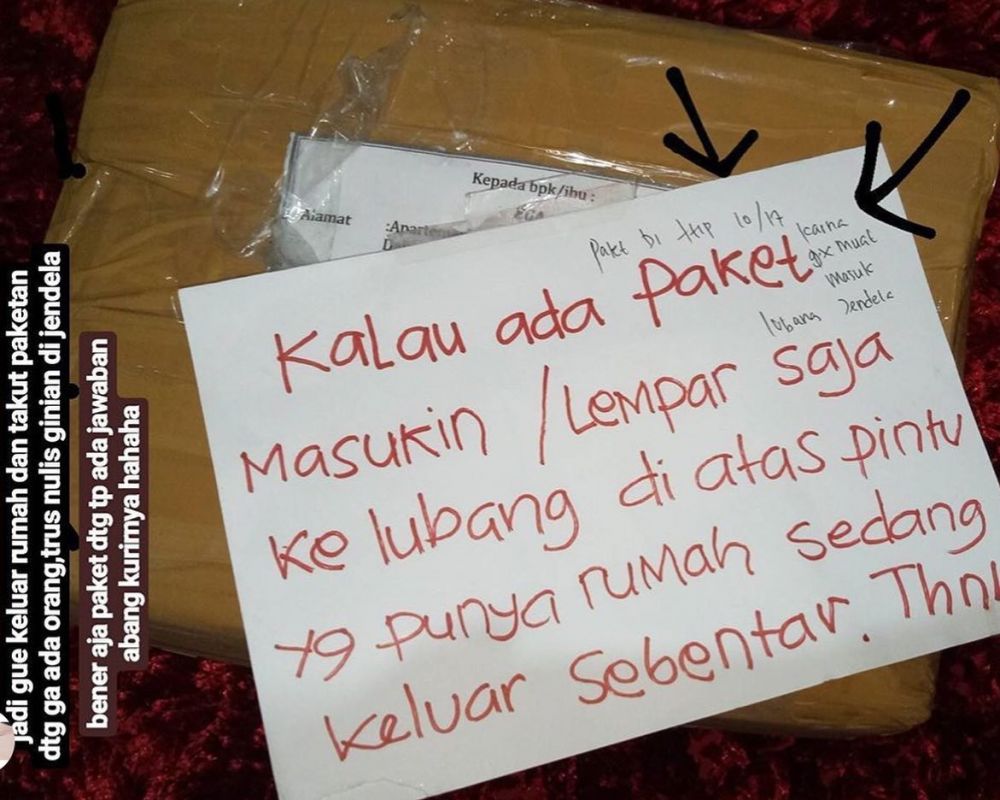 jadi gue keluar rumah dan takut paketan
dtg ga ada orang,trus nulis ginian di jendela
bener aja paket dtg tp ada jawaban
abang kurirnya hahaha
Kepada bpk/ibu :
EGA
Alamat
Paket di ttip 10/17 karna
gix muat
masuk
lubang Jendela
Kalau ada Paket
Masukin / Lempar saja
ke lubang di atas pintu
yg punya rumah sedang
keluar sebentar. Thn